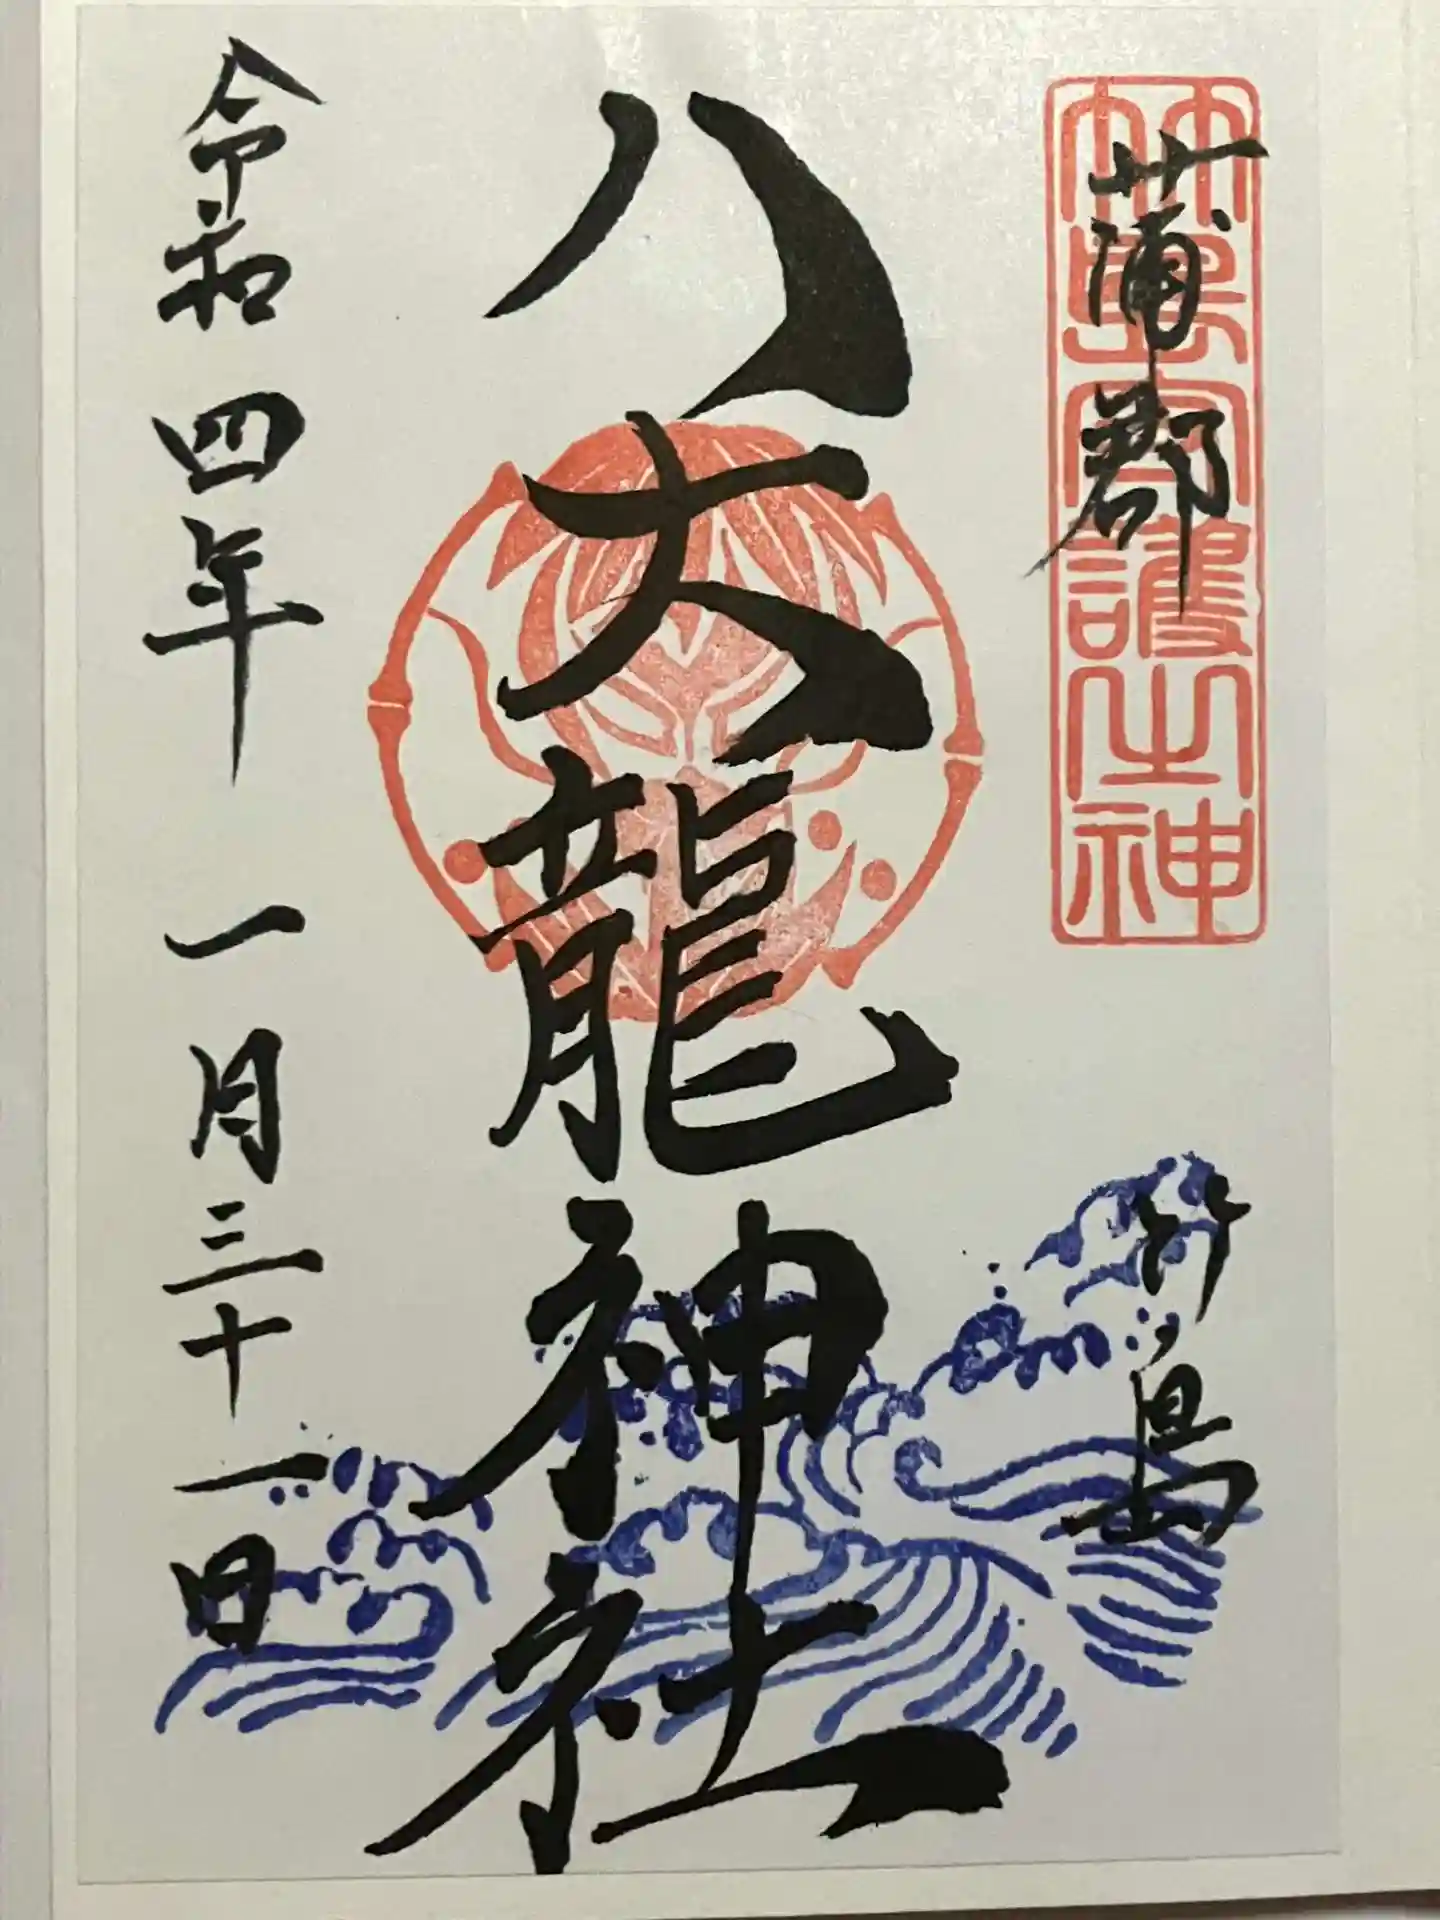 蒲郡
竹島
竹島守護之神
八大龍神社
令和四年一月三十一日